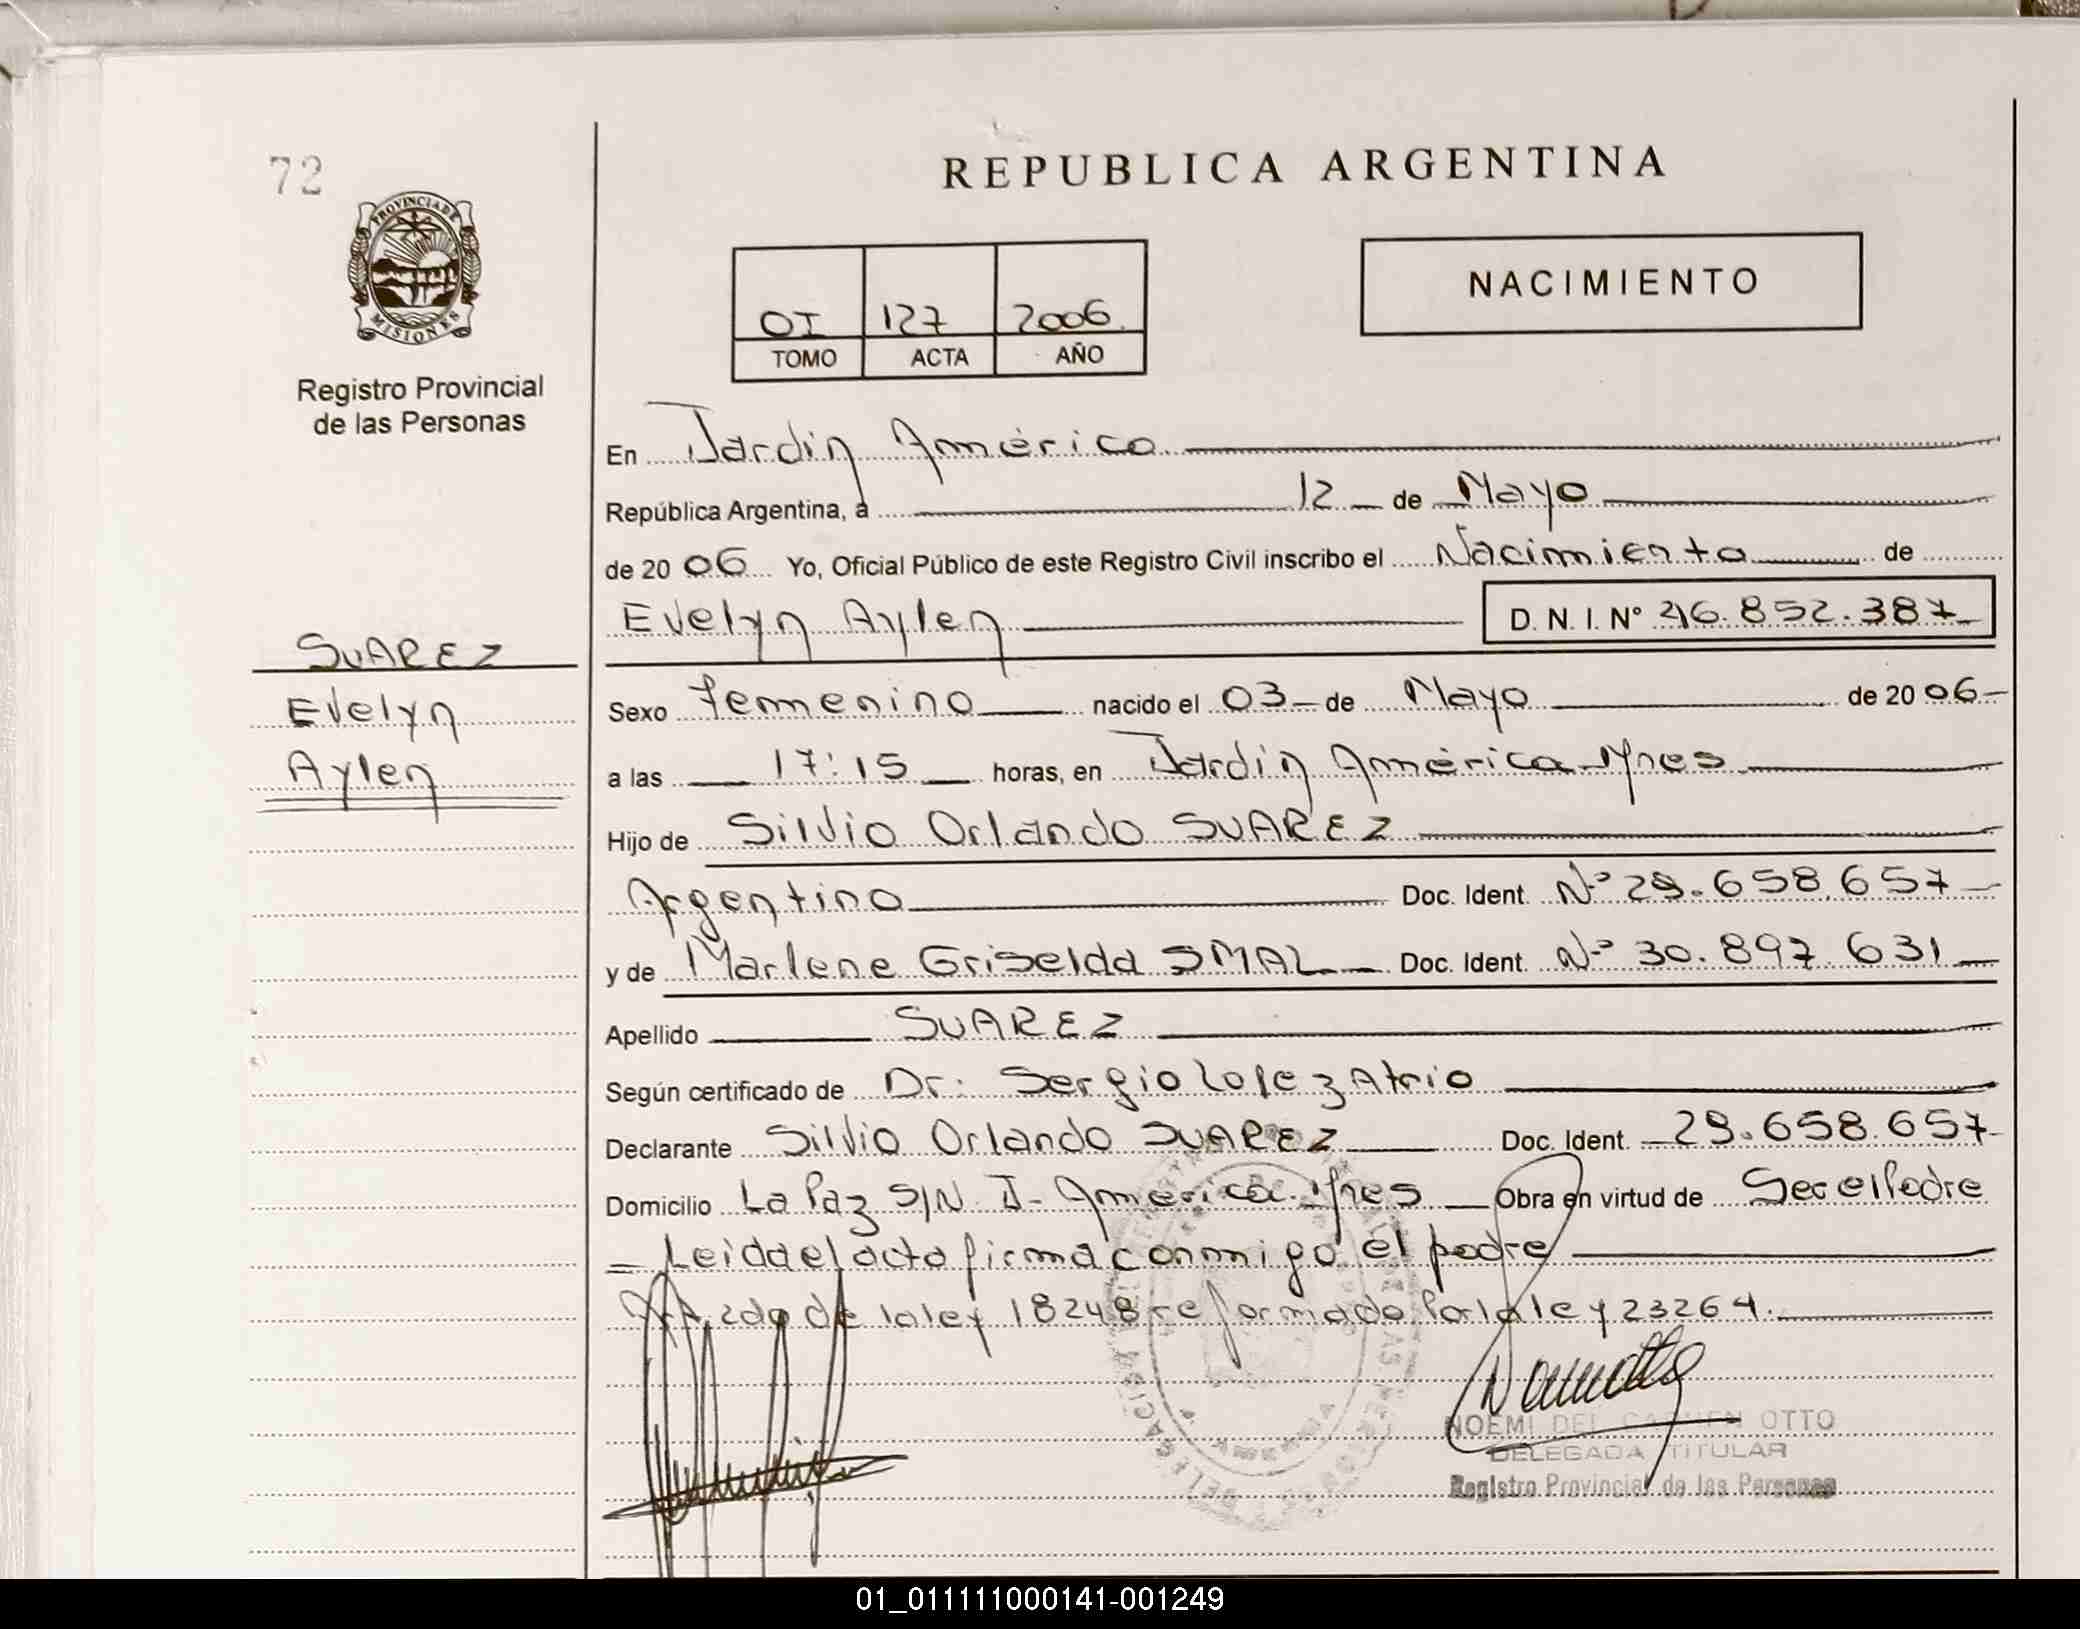 72
REPUBLICA ARGENTINA
PROVINCIA DE
MISIONES
Registro Provincial
de las Personas
OI 127 2006
TOMO ACTA AÑO
NACIMIENTO
En Jardin América
República Argentina, a 12 de Mayo
de 20 06 Yo, Oficial Público de este Registro Civil inscribo el Nacimiento de
Evelyn Aylen D. N. I. Nº 46.852.387
SUAREZ
Evelyn
Aylen
Sexo femenino nacido el 03 de Mayo de 20 06
a las 17:15 horas, en Jardin América Mnes
Hijo de Silvio Orlando SUAREZ
Argentino Doc. Ident. Nº 29.658.657
y de Marlene Griselda SMAL Doc. Ident. Nº 30.897.631
Apellido SUAREZ
Según certificado de Dr: Sergio Lopez Atrio
Declarante Silvio Orlando SUAREZ Doc. Ident. 29.658.657
Domicilio La Paz S/N J- America Mnes Obra en virtud de Ser el Padre
Leida el acta firma conmigo el padre
de la ley 18248 reformado Por la ley 23264.
NOEMI DEL CARMEN OTTO
DELEGADA TITULAR
Registro Provincial de las Personas
01_011111000141-001249